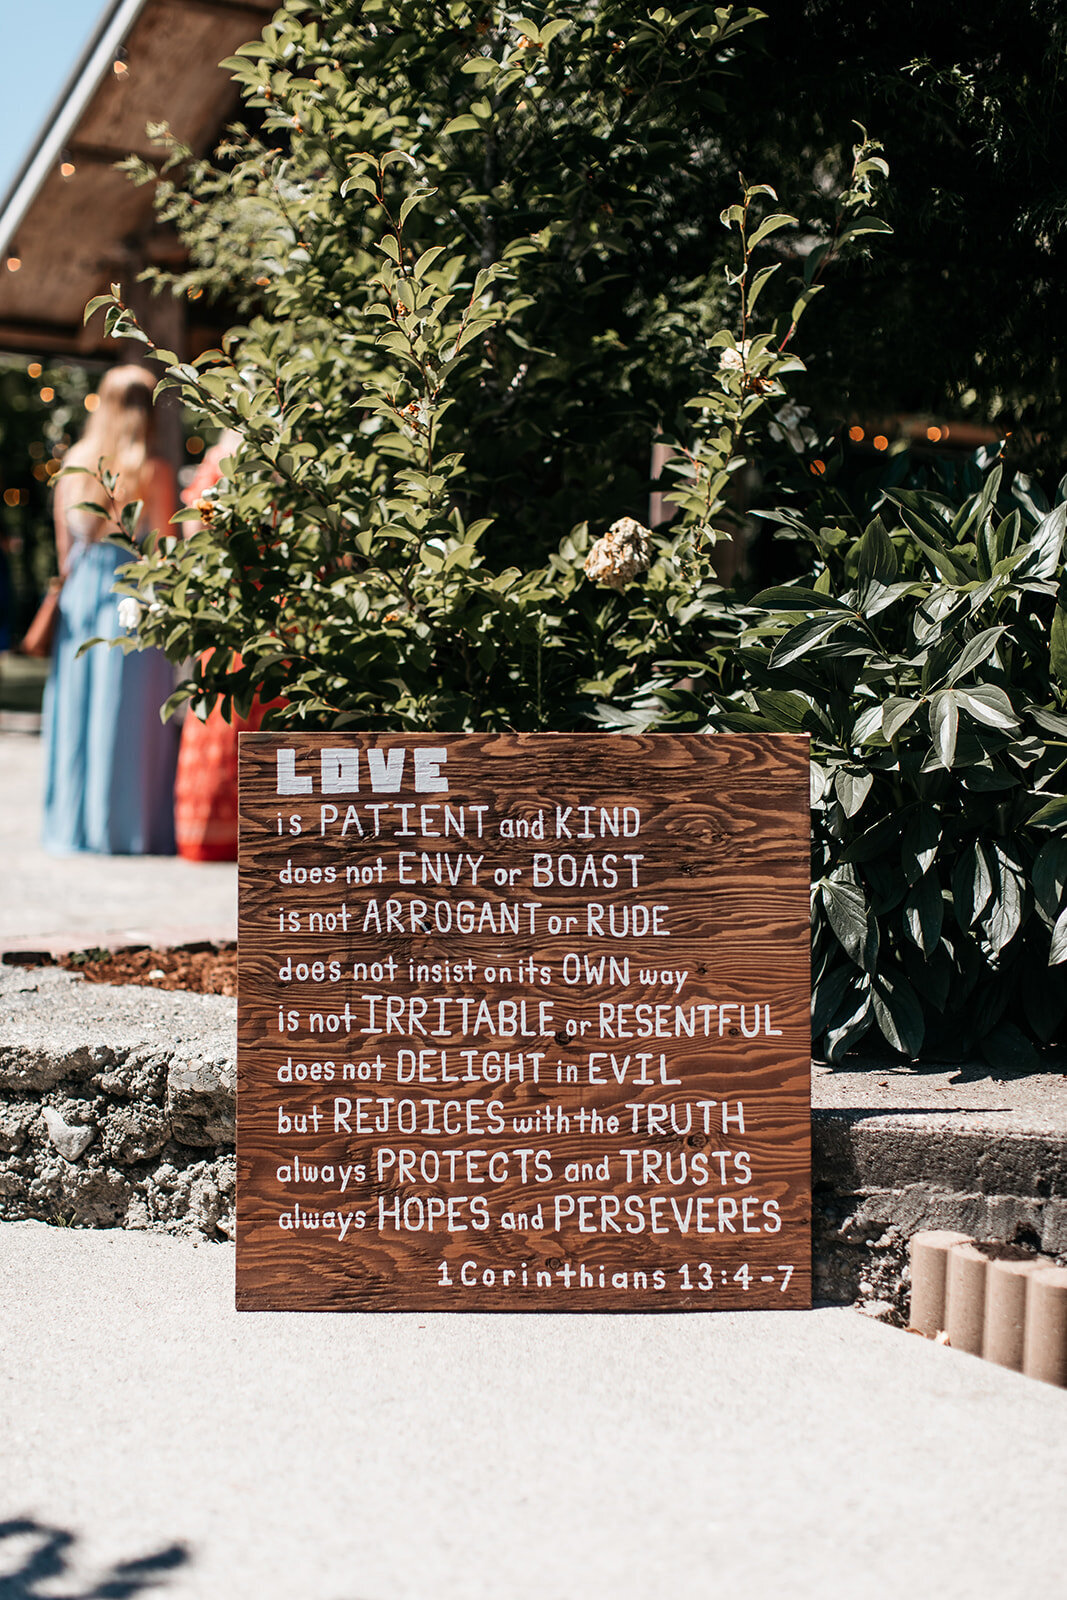 LOVE
is PATIENT and KIND
does not ENVY or BOAST
is not ARROGANT or RUDE
does not insist on its OWN way
is not IRRITABLE or RESENTFUL
does not DELIGHT in EVIL
but REJOICES with the TRUTH
always PROTECTS and TRUSTS
always HOPES and PERSEVERES
1 Corinthians 13:4-7